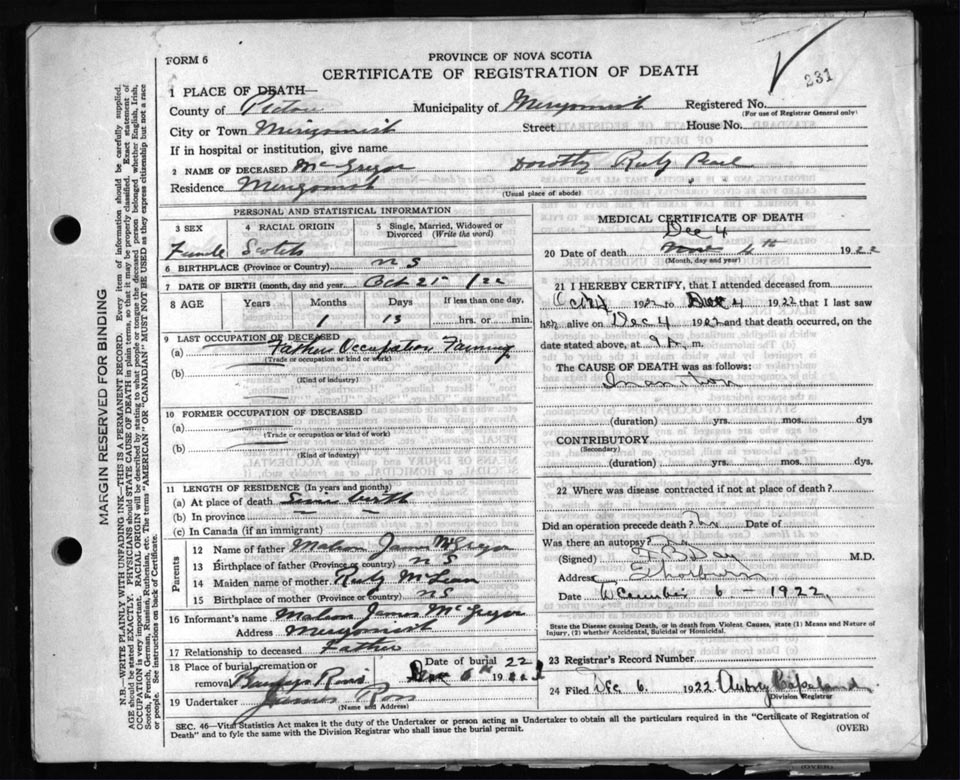 FORM 6
PROVINCE OF NOVA SCOTIA
CERTIFICATE OF REGISTRATION OF DEATH
231
1 PLACE OF DEATH—
County of Pictou Municipality of Merigomish Registered No.
(For use of Registrar General only)
City or Town Merigomish Street House No.
If in hospital or institution, give name
2 NAME OF DECEASED McGregor Dorothy Ruby
Residence Merigomish (Usual place of abode)
PERSONAL AND STATISTICAL INFORMATION
3 SEX 4 RACIAL ORIGIN 5 Single, Married, Widowed or Divorced (Write the word)
Female Scotch
6 BIRTHPLACE (Province or Country) N S
7 DATE OF BIRTH (month, day and year) Oct 21st /22
8 AGE Years Months Days If less than one day,
1 13 hrs. or min.
9 LAST OCCUPATION OF DECEASED
(a) Father Occupation Farming
(Trade or occupation or kind of work)
(b)
(Kind of industry)
10 FORMER OCCUPATION OF DECEASED
(a)
(Trade or occupation or kind of work)
(b)
(Kind of industry)
11 LENGTH OF RESIDENCE (In years and months)
(a) At place of death Since birth
(b) In province
(c) In Canada (if an immigrant)
Parents
12 Name of father James McGregor
13 Birthplace of father (Province or country) N S
14 Maiden name of mother Ruby McLean
15 Birthplace of mother (Province or country) N S
16 Informant's name James McGregor
Address Merigomish
17 Relationship to deceased Father
18 Place of burial, cremation or removal Date of burial 22
Dec 6th
19 Undertaker James Ross
(Name and Address)
MEDICAL CERTIFICATE OF DEATH
Dec 4
20 Date of death 4th 1922
(Month, day and year)
21 I HEREBY CERTIFY, that I attended deceased from
1922 to Dec 4 1922 that I last saw
her alive on Dec 4 1922 and that death occurred, on the
date stated above, at 9 a. m.
The CAUSE OF DEATH was as follows:
Inanition
(duration) yrs. mos. dys
CONTRIBUTORY
(Secondary)
(duration) yrs. mos. dys.
22 Where was disease contracted if not at place of death?
Did an operation precede death? No Date of
Was there an autopsy? No
(Signed) F B Day M.D.
Address Thorburn
Date December 6 – 1922
State the Disease causing Death, or in death from Violent Causes, state (1) Means and Nature of
Injury, (2) whether Accidental, Suicidal or Homicidal.
23 Registrar's Record Number
24 Filed Dec. 6 1922 Aubrey Copeland
Division Registrar
SEC. 46—Vital Statistics Act makes it the duty of the Undertaker or person acting as Undertaker to obtain all the particulars required in the "Certificate of Registration of
Death" and to fyle the same with the Division Registrar who shall issue the burial permit. (OVER)
MARGIN RESERVED FOR BINDING
N.B.—WRITE PLAINLY WITH UNFADING INK—THIS IS A PERMANENT RECORD. Every item of information should be carefully supplied.
AGE should be stated EXACTLY. PHYSICIANS should STATE CAUSE OF DEATH in plain terms, so that it may be properly classified. Exact statement of
OCCUPATION is very important. RACIAL ORIGIN will be described by stating to what people or tongue the deceased person belonged whether English, Irish,
Scotch, French, German, Russian, Ruthenian, etc. The terms "AMERICAN" OR "CANADIAN" MUST NOT BE USED as they express citizenship but not a race
or people. See instructions on back of Certificate.
(OVER)